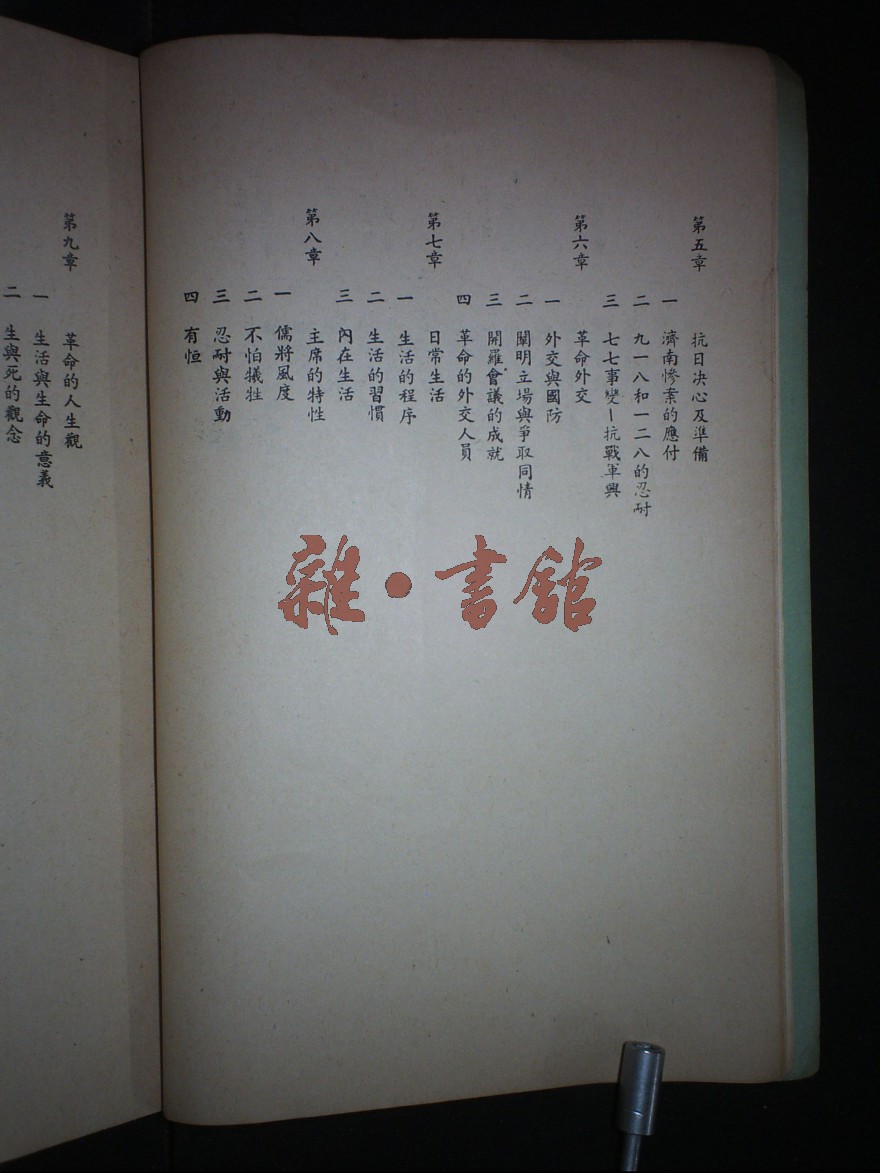 第五章 抗日决心及準備
一 濟南慘案的應付
二 九一八和一二八的忍耐
三 七七事變—抗戰軍興
第六章 革命外交
一 外交與國防
二 闡明立場與爭取同情
三 開羅會議的成就
四 革命的外交人員
第七章 日常生活
一 生活的程序
二 生活的習慣
三 內在生活
第八章 主席的特性
一 儒將風度
二 不怕犧牲
三 忍耐與活動
四 有恒
第九章 革命的人生觀
一 生活與生命的意義
二 生與死的觀念
雜·書館